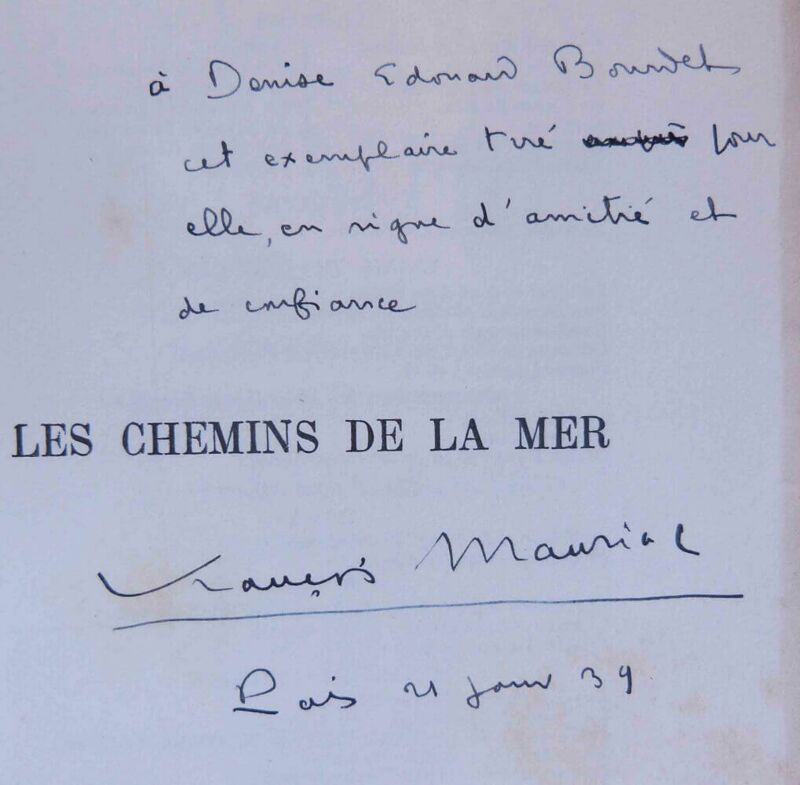 à Denise Edouard Bourdet
cet exemplaire tiré pour
elle, en signe d'amitié et
de confiance
LES CHEMINS DE LA MER
François Mauriac
Paris 21 janv 39